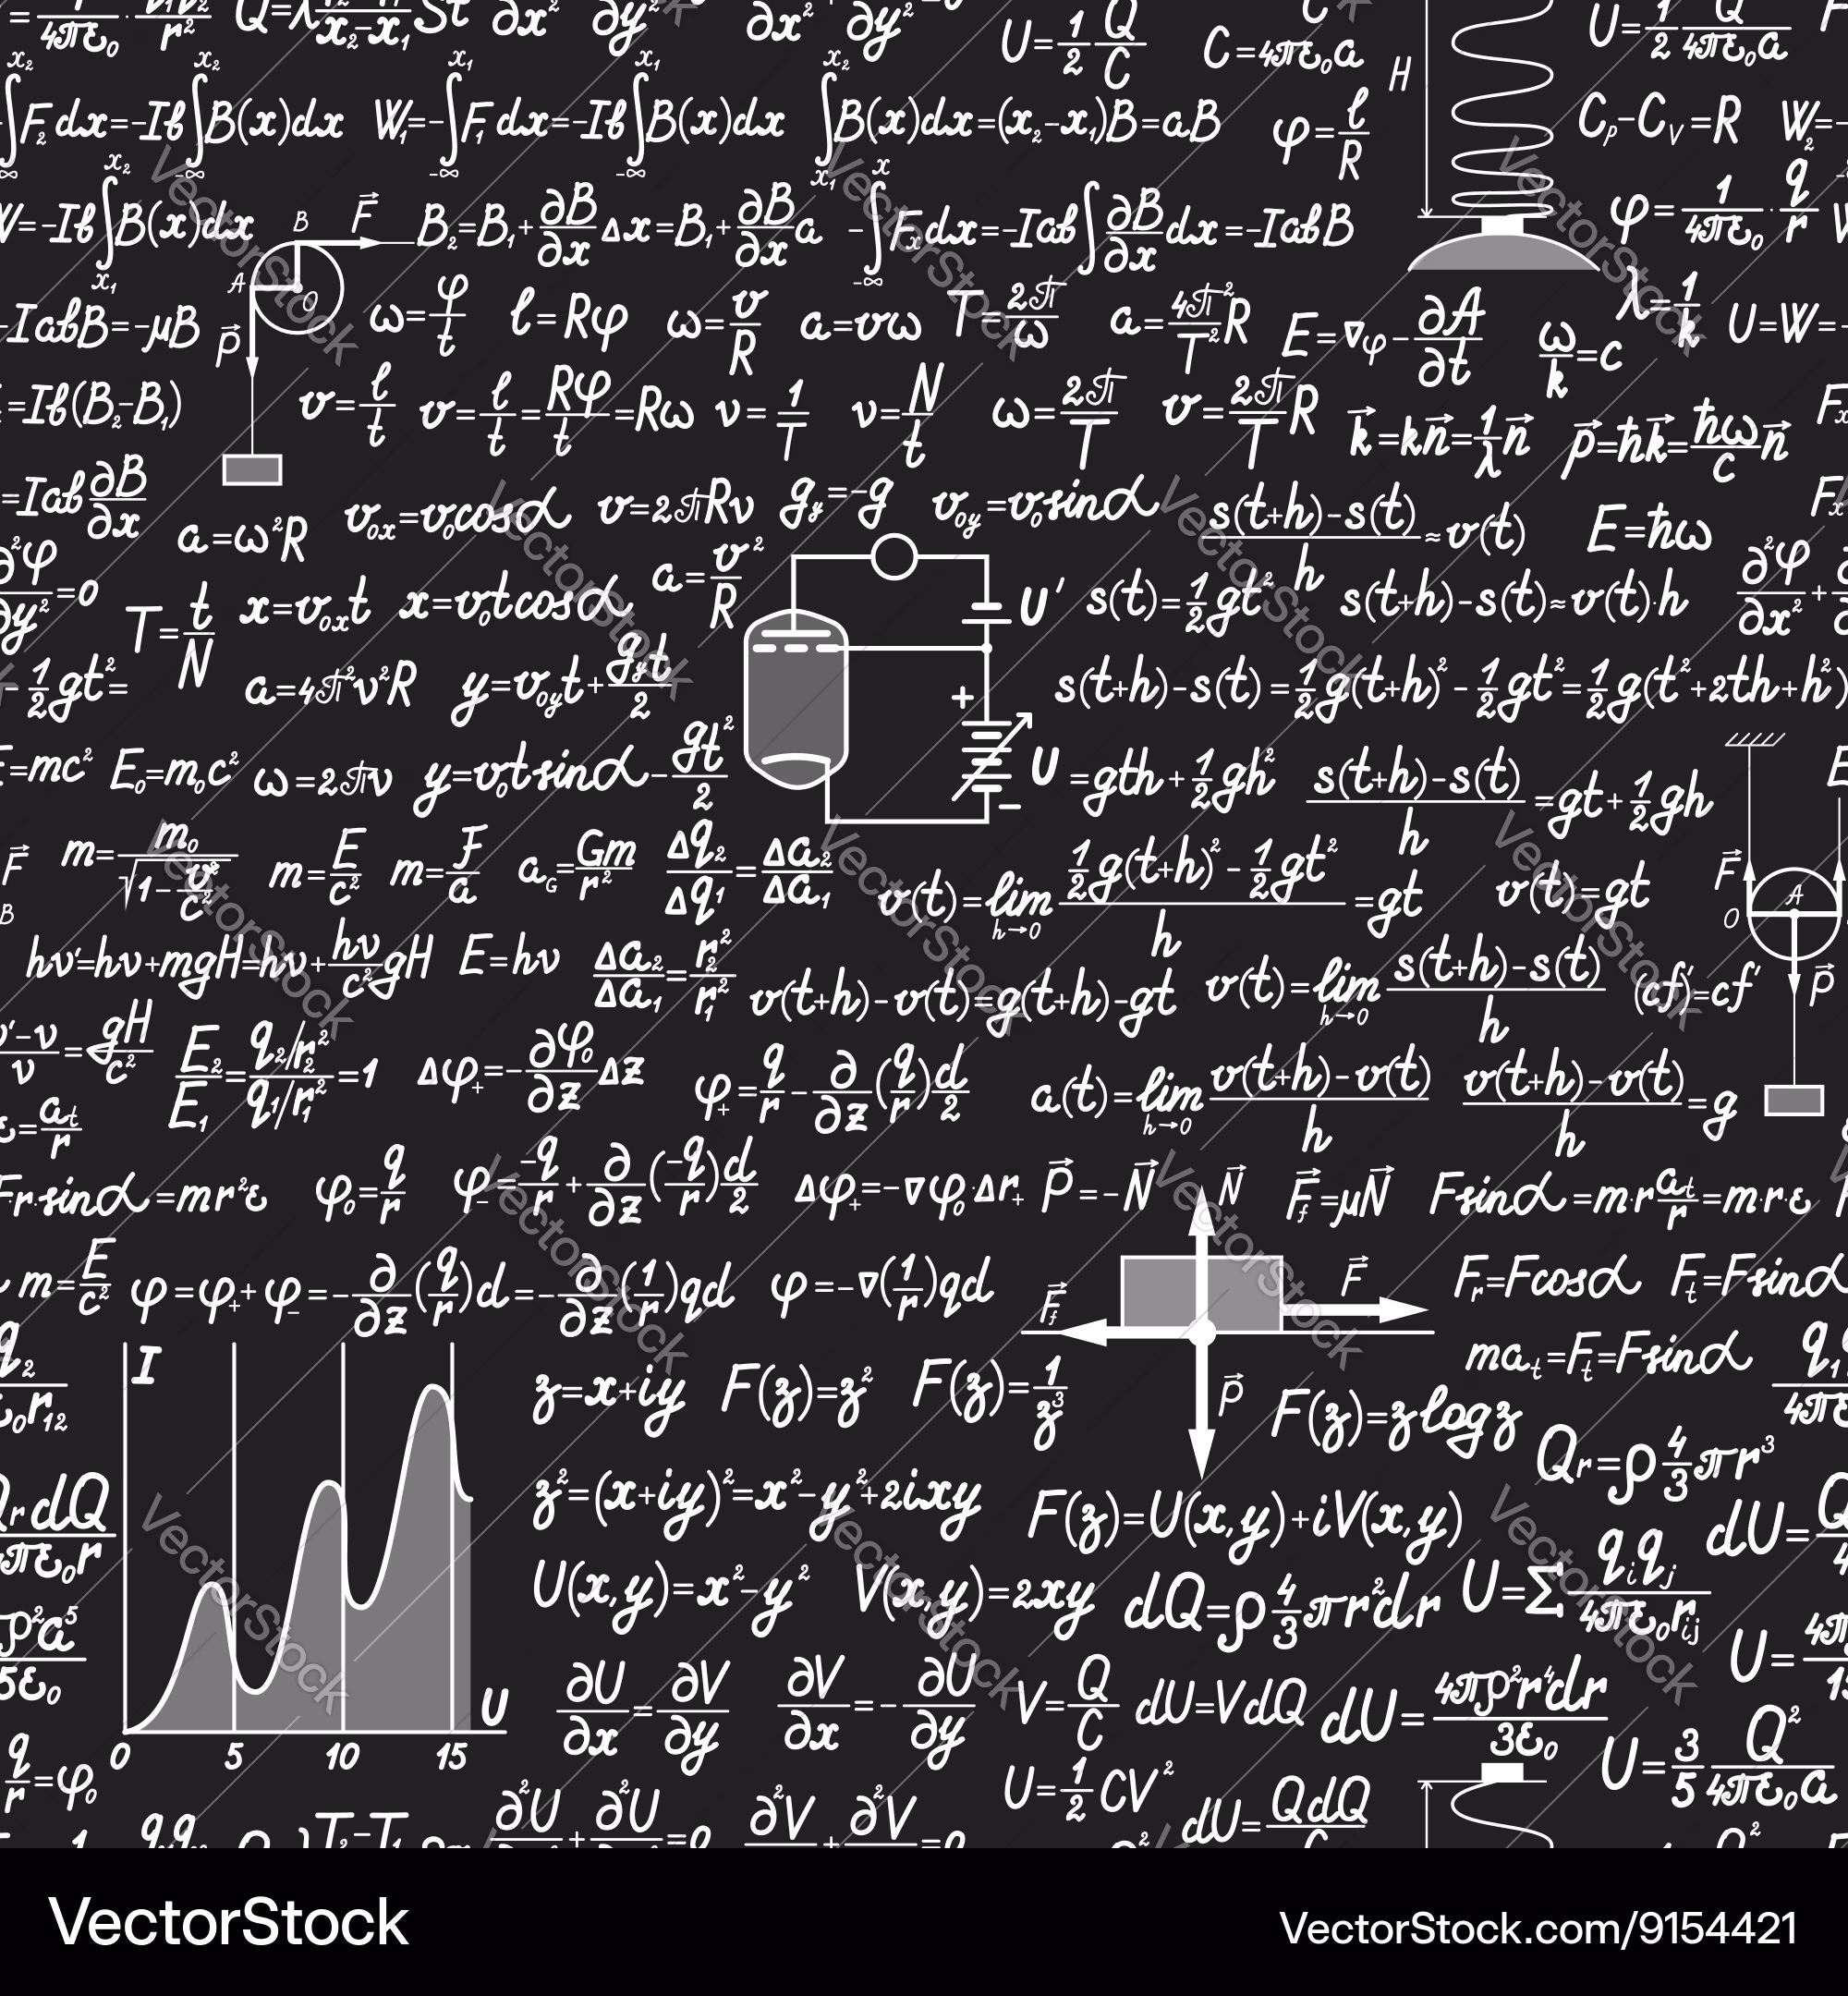 U=1/2 Q/C
C=4πε₀a
H
U=1/2 Q/4πε₀a
∫F₂dx=-Ib∫B(x)dx
W₁=-∫F₁dx=-Ib∫B(x)dx
∫B(x)dx=(x₂-x₁)B=aB
φ=ℓ/R
Cₚ-Cᵥ=R
W₂=-
W=-Ib∫B(x)dx
B
F
B₂=B₁+∂B/∂x Δx=B₁+∂B/∂x a
-∫Fₓdx=-Iab∫∂B/∂x dx=-IabB
φ=1/4πε₀·q/r
-IabB=-μB
A
O
P
ω=φ/t
ℓ=Rφ
ω=v/R
a=vω
T=2π/ω
a=4π²/T² R
E=∇φ-∂A/∂t
ω/k=c
λ=1/k
U=W=-
=Ib(B₂-B₁)
v=ℓ/t
v=ℓ/t=Rφ/t=Rω
ν=1/T
ν=N/t
ω=2π/T
v=2π/T R
k=kn=1/λ n
p=ħk=ħω/c n
=Iab ∂B/∂x
a=ω²R
v₀ₓ=v₀cosα
v=2πRν
gᵧ=-g
v₀ᵧ=v₀sinα
s(t+h)-s(t)/h≈v(t)
E=ħω
∂²φ/∂y²=0
T=t/N
x=v₀ₓt
x=v₀tcosα
a=v²/R
U'
s(t)=1/2 gt²
s(t+h)-s(t)≈v(t)·h
-1/2 gt²=
a=4π²ν²R
y=v₀ᵧt+gᵧt/2
+
s(t+h)-s(t)=1/2 g(t+h)²-1/2 gt²=1/2 g(t²+2th+h²)
E=mc²
E₀=m₀c²
ω=2πν
y=v₀tsinα-gt²/2
U
-
=gth+1/2 gh²
s(t+h)-s(t)/h=gt+1/2 gh
F
B
m=m₀/√1-v²/c²
m=E/c²
m=F/a
a_G=Gm/r²
Δq₂/Δq₁=Δa₂/Δa₁
v(t)=lim h→0 1/2 g(t+h)²-1/2 gt²/h=gt
v(t)=gt
F
O
A
hν'=hν+mgH=hν+hν/c² gH
E=hν
Δa₂/Δa₁=r₂²/r₁²
v(t+h)-v(t)=g(t+h)-gt
v(t)=lim h→0 s(t+h)-s(t)/h
(cf)'=cf'
P
ν'-ν/ν=gH/c²
E₂/E₁=q₂/r₂²/q₁/r₁²=1
Δφ₊=-∂φ₀/∂z Δz
φ₊=q/r-∂/∂z(q/r)d/2
a(t)=lim h→0 v(t+h)-v(t)/h
v(t+h)-v(t)/h=g
ε=aₜ/r
F·r·sinα=mr²ε
φ₀=q/r
φ₋=-q/r+∂/∂z(-q/r)d/2
Δφ₊=-∇φ₀·Δr₊
P=-N
N
F_f=μN
Fsinα=m·r aₜ/r=m·r·ε
m=E/c²
φ=φ₊+φ₋=-∂/∂z(q/r)d=-∂/∂z(1/r)qd
φ=-∇(1/r)qd
F_f
F
Fᵣ=Fcosα
Fₜ=Fsinα
I
z=x+iy
F(z)=z²
F(z)=1/z³
P
F(z)=zlogz
maₜ=Fₜ=Fsinα
Qᵣ=ρ4/3πr³
QᵣdQ/4πε₀r
z²=(x+iy)²=x²-y²+2ixy
F(z)=U(x,y)+iV(x,y)
U(x,y)=x²-y²
V(x,y)=2xy
dQ=ρ4/3πr²dr
U=Σ qᵢqⱼ/4πε₀rᵢⱼ
∂U/∂x=∂V/∂y
∂V/∂x=-∂U/∂y
V=Q/C
dU=VdQ
dU=4πρ²r⁴dr/3ε₀
U
0 5 10 15
q/r=φ₀
U=1/2 CV²
dU=QdQ/C
U=3/5 Q²/4πε₀a
VectorStock
VectorStock.com/9154421